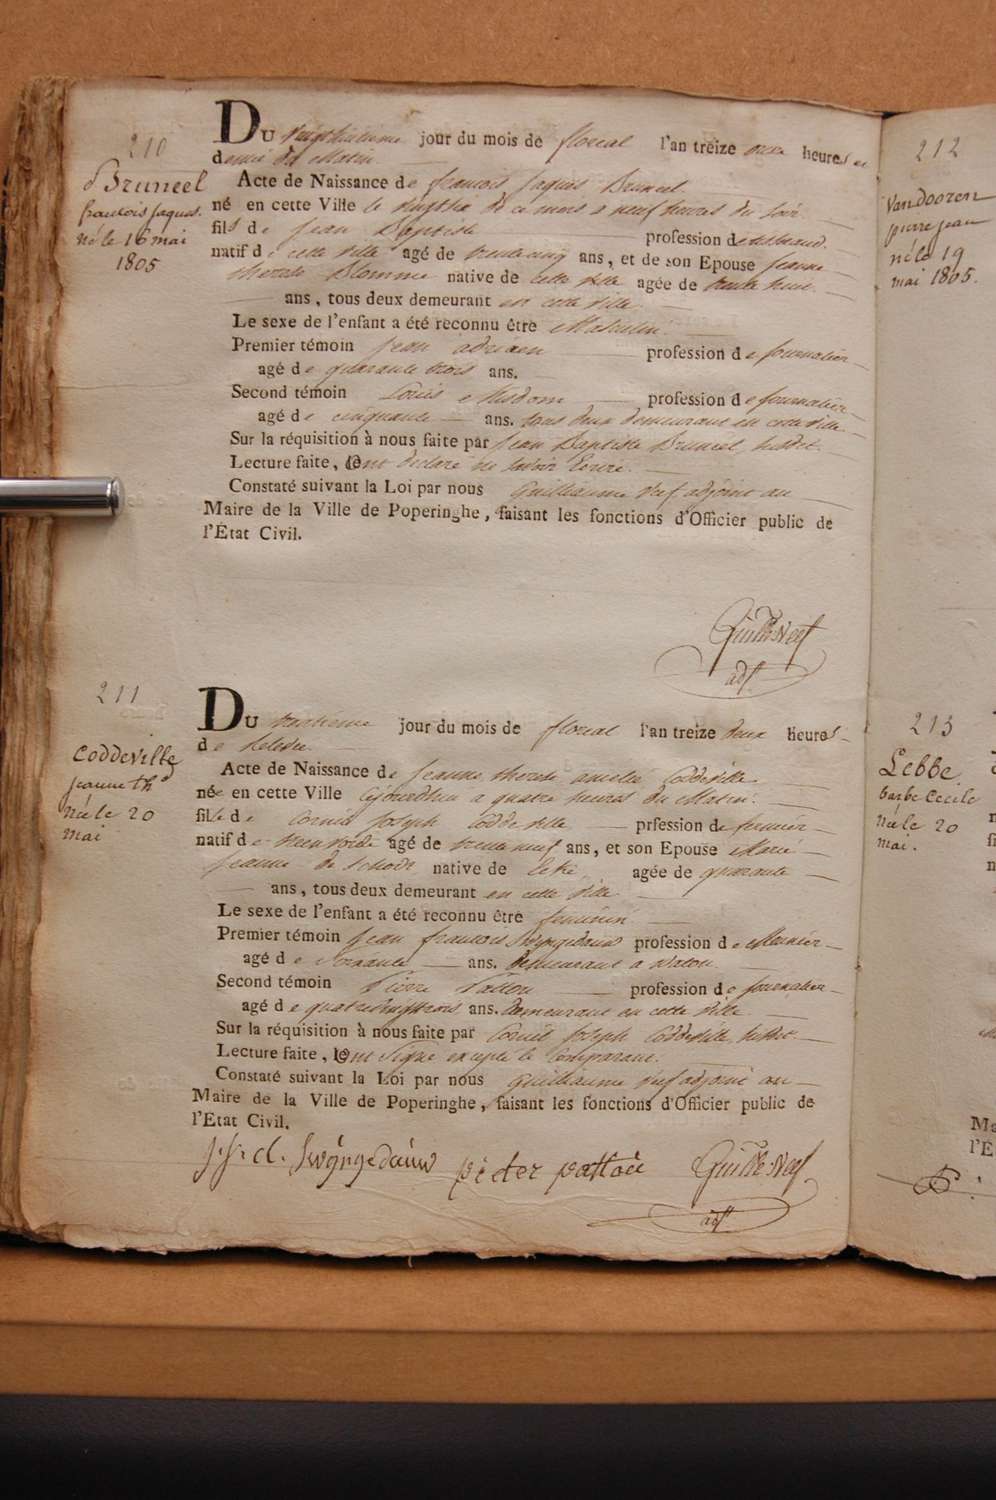 210
Bruneel
francois jaques.
né le 16 mai
1805
DU jour du mois de floreal l'an treize onze heures et
demie du Matin
Acte de Naissance de francois Jaques Bruneel
né en cette Ville le de ce mois a neuf heures du soir
fils de Jean Baptiste profession de
natif de cette ville agé de trente cinq ans, et de son Epouse Jeanne
therese Blomme native de cette ville agée de trente huit
ans, tous deux demeurant en cette ville
Le sexe de l'enfant a été reconnu être Masculin.
Premier témoin Jean adriaen profession de journalier
agé de quarante trois ans.
Second témoin Louis profession de journalier
agé de cinquante ans. tous deux demeurant en cette ville
Sur la réquisition à nous faite par Jean Baptiste Bruneel susdit.
Lecture faite, ont declaré ne savoir Ecrire.
Constaté suivant la Loi par nous Guilliaume Neef adjoint au
Maire de la Ville de Poperinghe, faisant les fonctions d'Officier public de
l'État Civil.
Guille Neef
adt.
211
Coddeville
jeanne th
née le 20
mai
DU trentieme jour du mois de floreal l'an treize deux heures
de relevée
Acte de Naissance de Jeanne therese amelie Coddeville
née en cette Ville cejourdhui a quatre heures du Matin.
fille de Cornil Joseph Coddeville prfession de fermier
natif de agé de trente neuf ans, et son Epouse Marie
Jeanne de Schodt native de agée de quarante
ans, tous deux demeurant en cette ville
Le sexe de l'enfant a été reconnu être feminin
Premier témoin Jean francois Swyngedauw profession de Meunier
agé de ans. demeurant a Watou.
Second témoin Pierre profession de journalier
agé de quatrevingttrois ans. demeurant en cette ville
Sur la réquisition à nous faite par Cornil Joseph Coddeville susdit.
Lecture faite, ont signé excepté le Comparant.
Constaté suivant la Loi par nous Guilliaume Neef adjoint au
Maire de la Ville de Poperinghe, faisant les fonctions d'Officier public de
l'Etat Civil.
j. f. d. Swyngedauw pieter Guille Neef
adt.
212
Vandooren
pierre jean
né le 19
mai 1805.
213
Lebbe
barbe Cecile
née le 20
mai.
Ma
l'E